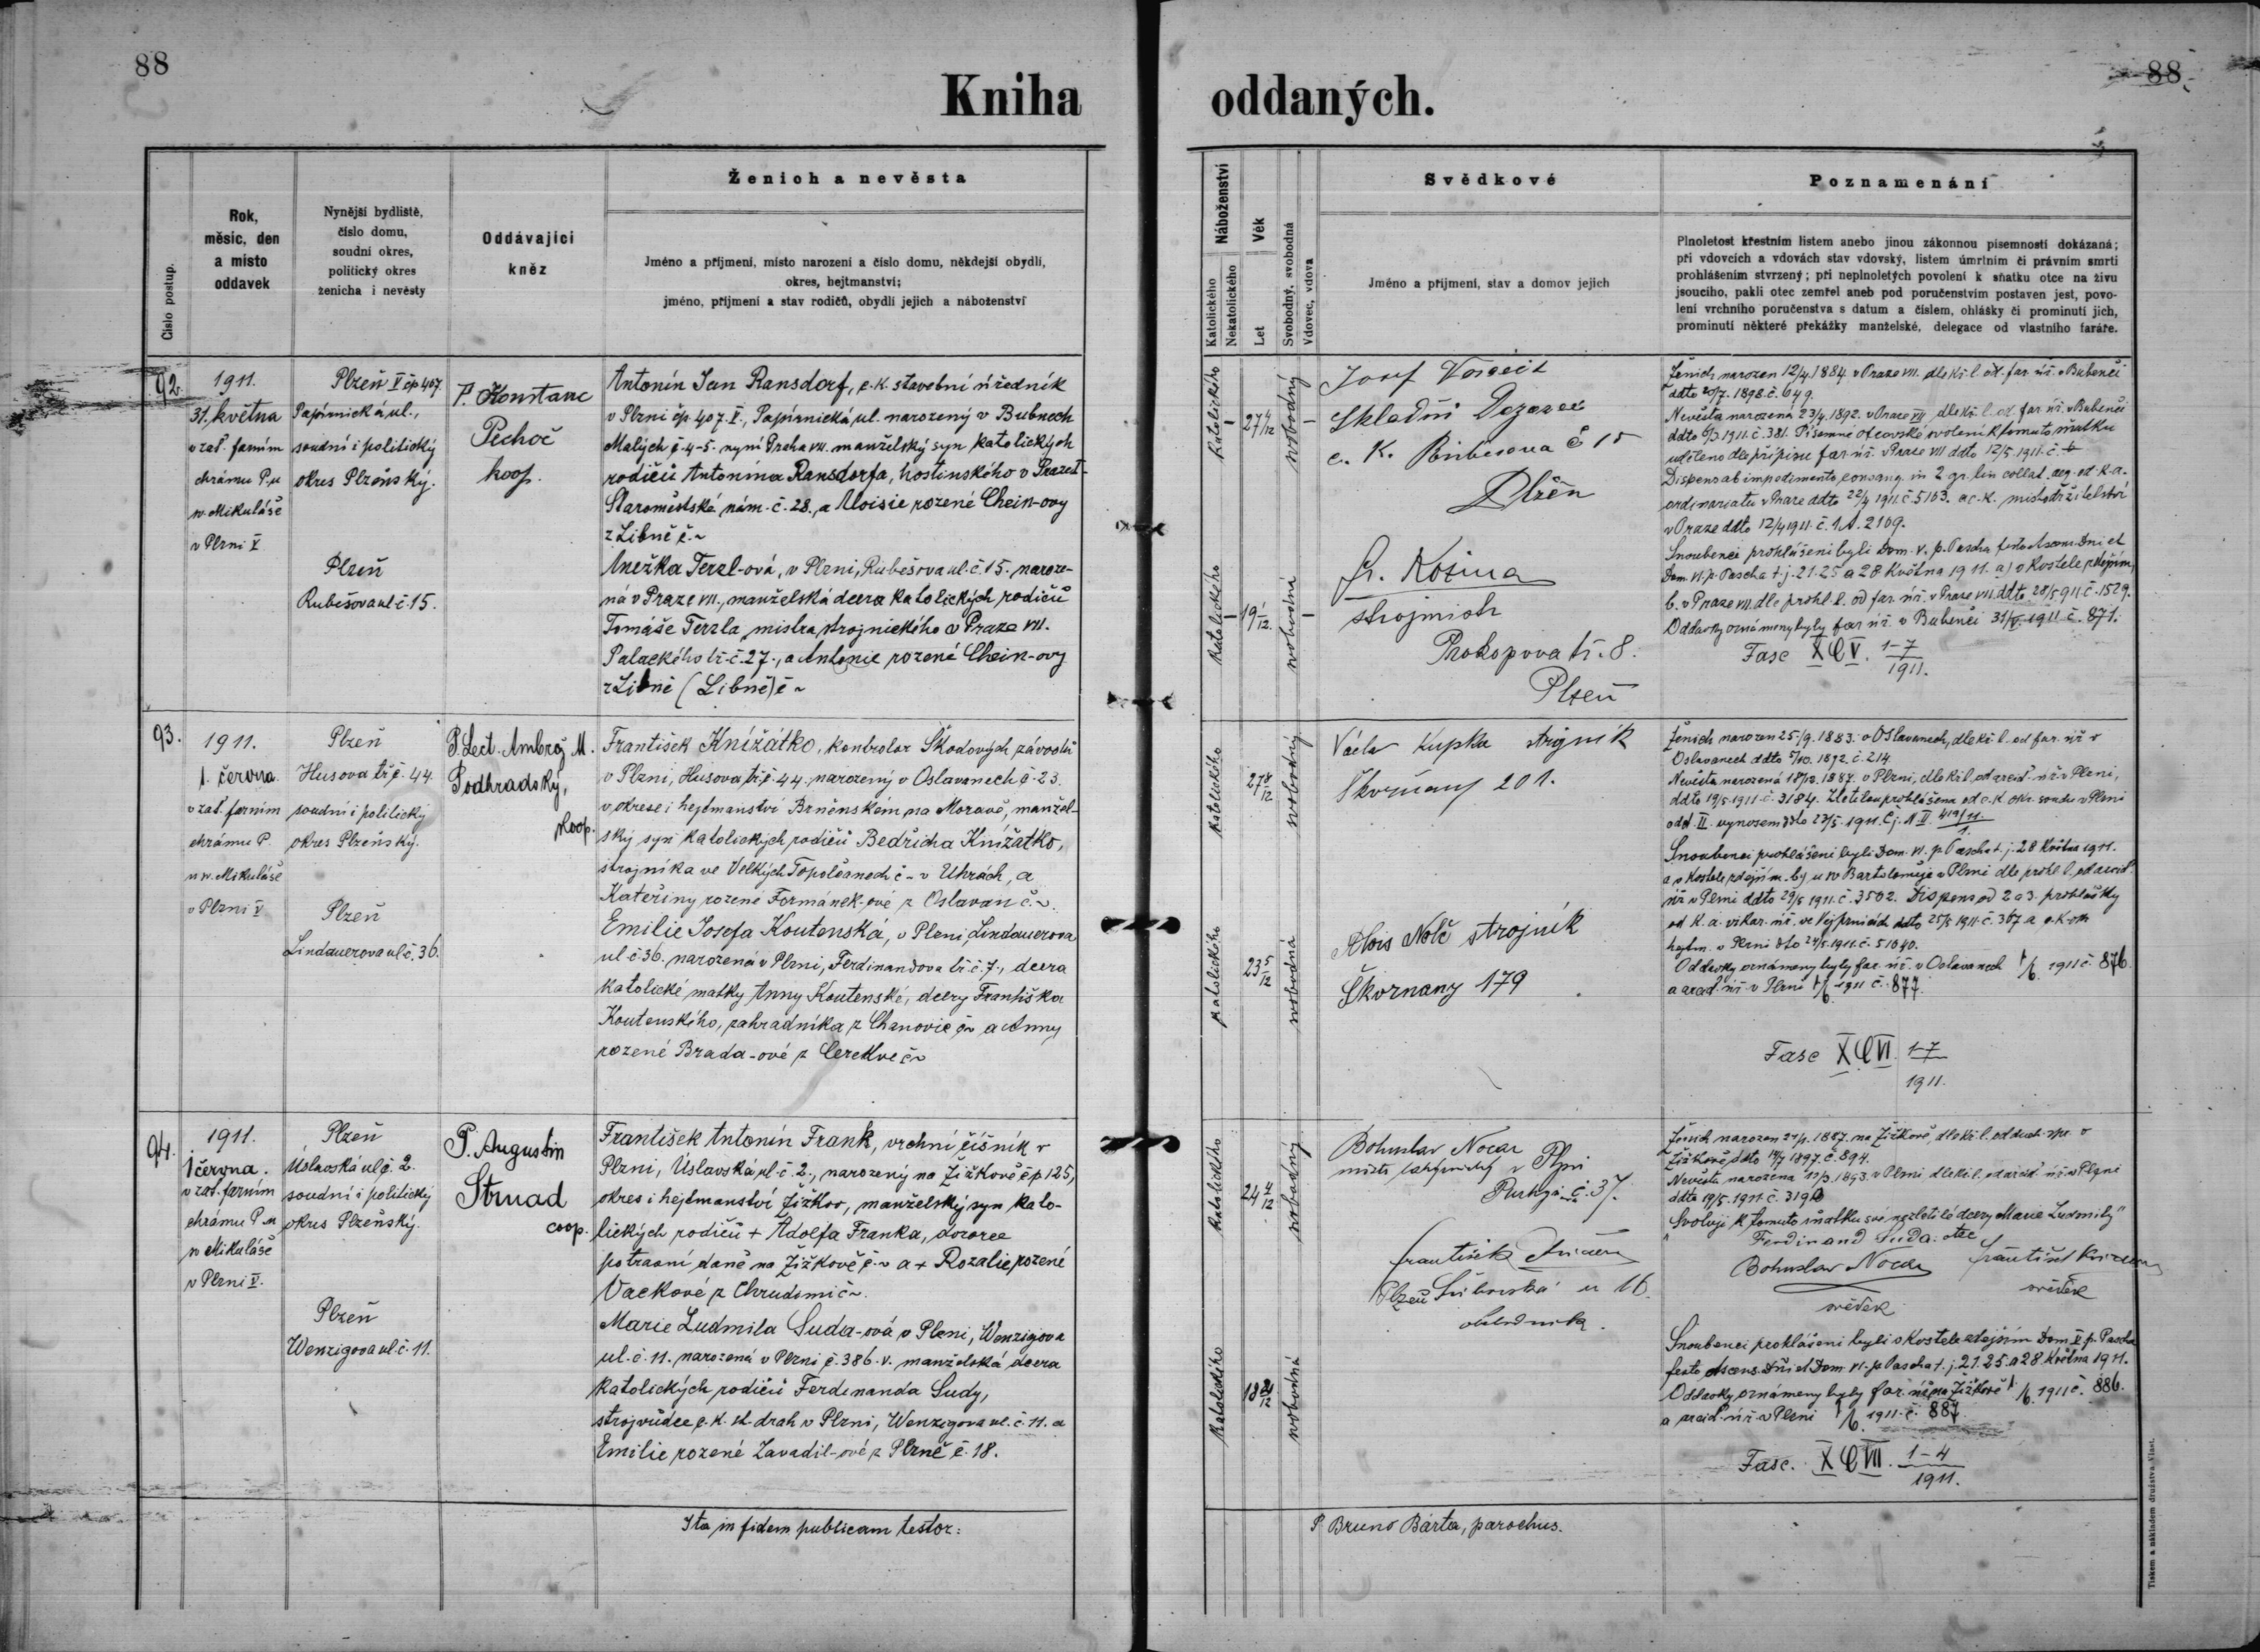 88
88
Kniha oddaných.
Číslo postup.
Rok,
měsíc, den
a místo
oddavek
Nynější bydliště,
číslo domu,
soudní okres,
politický okres
ženicha i nevěsty
Oddávající
kněz
Ženich a nevěsta
Jméno a příjmení, místo narození a číslo domu, někdejší obydlí,
okres, hejtmanství;
jméno, příjmení a stav rodičů, obydlí jejich a náboženství
Náboženství
Katolického
Nekatolického
Věk
Let
Svobodný, svobodná
Vdovec, vdova
Svědkové
Jméno a příjmení, stav a domov jejich
Poznamenání
Plnoletost křestním listem anebo jinou zákonnou písemností dokázaná;
při vdovcích a vdovách stav vdovský, listem úmrtním či právním smrti
prohlášením stvrzený; při neplnoletých povolení k sňatku otce na živu
jsoucího, pakli otec zemřel aneb pod poručenstvím postaven jest, povo-
lení vrchního poručenstva s datum a číslem, ohlášky či prominutí jich,
prominutí některé překážky manželské, delegace od vlastního faráře.
92.
1911.
31. května
v zat. farním
chrámu P. u
sv. Mikuláše
v Plzni V
Plzeň V čp 407.
Papírnická ul.,
soudní i politický
okres Plzeňský.
Plzeň
Rubešova ul. č. 15.
P. Konstanc
Pechoč
koop.
Antonín Jan Ransdorf, c.k. stavební úředník
v Plzni čp. 407. V., Papírnická ul. narozený v Bubnech
Malých č. 4-5. nyní Praha VII. manželský syn katolických
rodičů Antonína Ransdorfa, hostinského v Praze I-
Staroměstské nám. č. 28., a Aloisie rozené Chein-ovy
z Libně č. ~
Anežka Terzl-ová, v Plzni, Rubešova ul. č. 15. naroze-
ná v Praze VII., manželská dcera katolických rodičů
Tomáše Terzla, mistra strojnického v Praze VII.
Palackého tř. č. 27., a Antonie rozené Chein-ovy
z Libně (Libně) č ~
katolického
27 4/12
svobodný
katolického
19 1/12.
svobodná
Josef
Skladní Dozorce
c. K. č 15
Plzeň
Fr. Kožina
strojmistr
Prokopova tř. 8.
Plzeň
Ženich narozen 12/4 1884 v Praze VII. dle kř. l. od far. úř. v Bubenči
ddto 20/7. 1898. č. 649.
Nevěsta narozena 23/4. 1892. v Praze VII, dle kř. l. od far. úř. v Bubenči
ddto 6/3. 1911. č. 381. Písemné otcovské svolení k tomuto sňatku
uděleno dle přípisu far. úř. v Praze VII ddto 12/5. 1911. č.
Dispens ab impedimento consang. in 2 gr. lin collat. aeq. od k. a.
ordinariatu v Praze ddto 22/4 1911. č. 5163. a c.k. místodržitelství
v Praze ddto 12/4 1911. č. 1. A. 2169.
Snoubenci prohlášeni byli Dom. V. p. Pascha, festo Ascens. Dni et
Dom. VI. p. Pascha t.j. 21. 25 a 28 Května 1911. a) v kostele zdejším,
b. v Praze VII. dle prohl. l. od far. úř. v Praze VII. ddto 28/5 911. č. 1529.
Oddavky oznámeny byly far. úř. v Bubenči 31/V. 1911 č. 871.
Fasc XCV. 1-7
1911.
93.
1911.
1. června
v zat. farním
chrámu P.
u sv. Mikuláše
v Plzni V
Plzeň
Husova tř. č. 44.
soudní i politický
okres Plzeňský.
Plzeň
Lindauerova ul. č. 36.
P. Lect. Ambrož M.
Podhradský,
koop.
František Knížátko, kontrolor Škodových závodů
v Plzni, Husova tř. č. 44. narozený v Oslavanech č. 23.
v okrese i hejtmanství Brněnském na Moravě, manžel-
ský syn katolických rodičů Bedřicha Knížátko,
strojníka ve Velkých Topolčanech č ~ v Uhrách, a
Kateřiny rozené Formánek-ové z Oslavan č. ~.
Emilie Josefa Koutenská, v Plzni, Lindauerova
ul. č. 36. narozená v Plzni, Ferdinandova tř. č. 7., dcera
katolické matky Anny Koutenské, dcery Františka
Koutenského, zahradníka z Chanovic č ~ a Anny
rozené Brada-ové z Cerekve č ~
katolického
27 8/12
svobodný
katolického
23 5/12
svobodná
Václav Kupka strojník
Škvrňany 201.
Alois Nolč strojník
Škvrnany 179
Ženich narozen 25/9. 1883. v Oslavanech, dle kř. l. od far. úř. v
Oslavanech ddto 1892. č. 214.
Nevěsta narozená 1887. v Plzni, dle kř. l. od arcid. úř. v Plzni,
ddto 19/5. 1911. č. 3184. Zletilou prohlášena od c.k. okr. soudu v Plzni
odd. II. vynosem ddto 23/5. 1911. č. j. N. II 419/11.
1.
Snoubenci prohlášeni byli Dom. VI. p. Pascha t. j. 28 Května 1911.
a v kostele zdejším. b) u sv Bartoloměje v Plzni dle prohl. l. od arcid.
úř. v Plzni ddto 29/5 1911. č. 3502. Dispens od 2 a 3. prohlášky
od k. a. vikar. úř. ve Vejprnicích ddto 25/5 1911. č. 367 a c.k. ok.
hejtm. v Plzni dto 24/5. 1911. č. 51040.
Oddavky oznámeny byly far. úř. v Oslavanech 1/6. 1911 č. 876
a arcid. úř. v Plzni 1/6. 1911 č. 877.
Fasc XCVI. 1-7
1911.
94.
1911.
1 června.
v zat. farním
chrámu P. u
sv Mikuláše
v Plzni V.
Plzeň
Úslavská ul. č. 2.
soudní i politický
okres Plzeňský.
Plzeň
Wenzigova ul. č. 11.
P. Augustin
Strnad
coop.
František Antonín Frank, vrchní číšník v
Plzni, Úslavská ul. č. 2., narozený na Žižkově čp 125,
okres i hejtmanství Žižkov, manželský syn kato-
lických rodičů + Adolfa Franka, dozorce
potravní daně na Žižkově č. ~ a + Rozalie rozené
Vackové z Chrudimi č ~.
Marie Ludmila Suda-ová v Plzni, Wenzigova
ul. č. 11. narozená v Plzni č. 386. V. manželská dcera
katolických rodičů Ferdinanda Sudy,
strojvůdce c.k. st. drah v Plzni, Wenzigova ul. č. 11. a
Emilie rozené Zavadil-ové z Plzně č. 18.
katolického
24 4/12
svobodný
katolického
18
svobodná
Bohuslav Nocar
v Plzni
č. 37.
František
Plzeň 16.
obchodník.
Ženich narozen 1887. na Žižkově, dle kř. l. od duch. spr. v
Žižkově ddto 14/7 1897. č. 894.
Nevěsta narozena 1893. v Plzni dle kř. l. od arcid. úř. v Plzni
ddto 19/5. 1911. č. 3190
"Svoluji k tomuto sňatku své nezletilé dcery Marie Ludmily"
Ferdinand Suda: otec
Bohuslav Nocar František
svědek
svědek
Snoubenci prohlášeni byli v kostele zdejším Dom. V p. Pascha
festo Ascens. Dni et Dom. VI. p. Pascha t. j. 21. 25. a 28. Května 1911.
Oddavky oznámeny byly far. úř. na Žižkově 1/6. 1911 č. 886.
a arcid. úř. v Plzni 1/6. 1911. č. 887
Fasc. XCVII. 1-4
1911.
Ita in fidem publicam testor:
P. Bruno Bárta, parochus.
Tiskem a nákladem družstva Vlast.